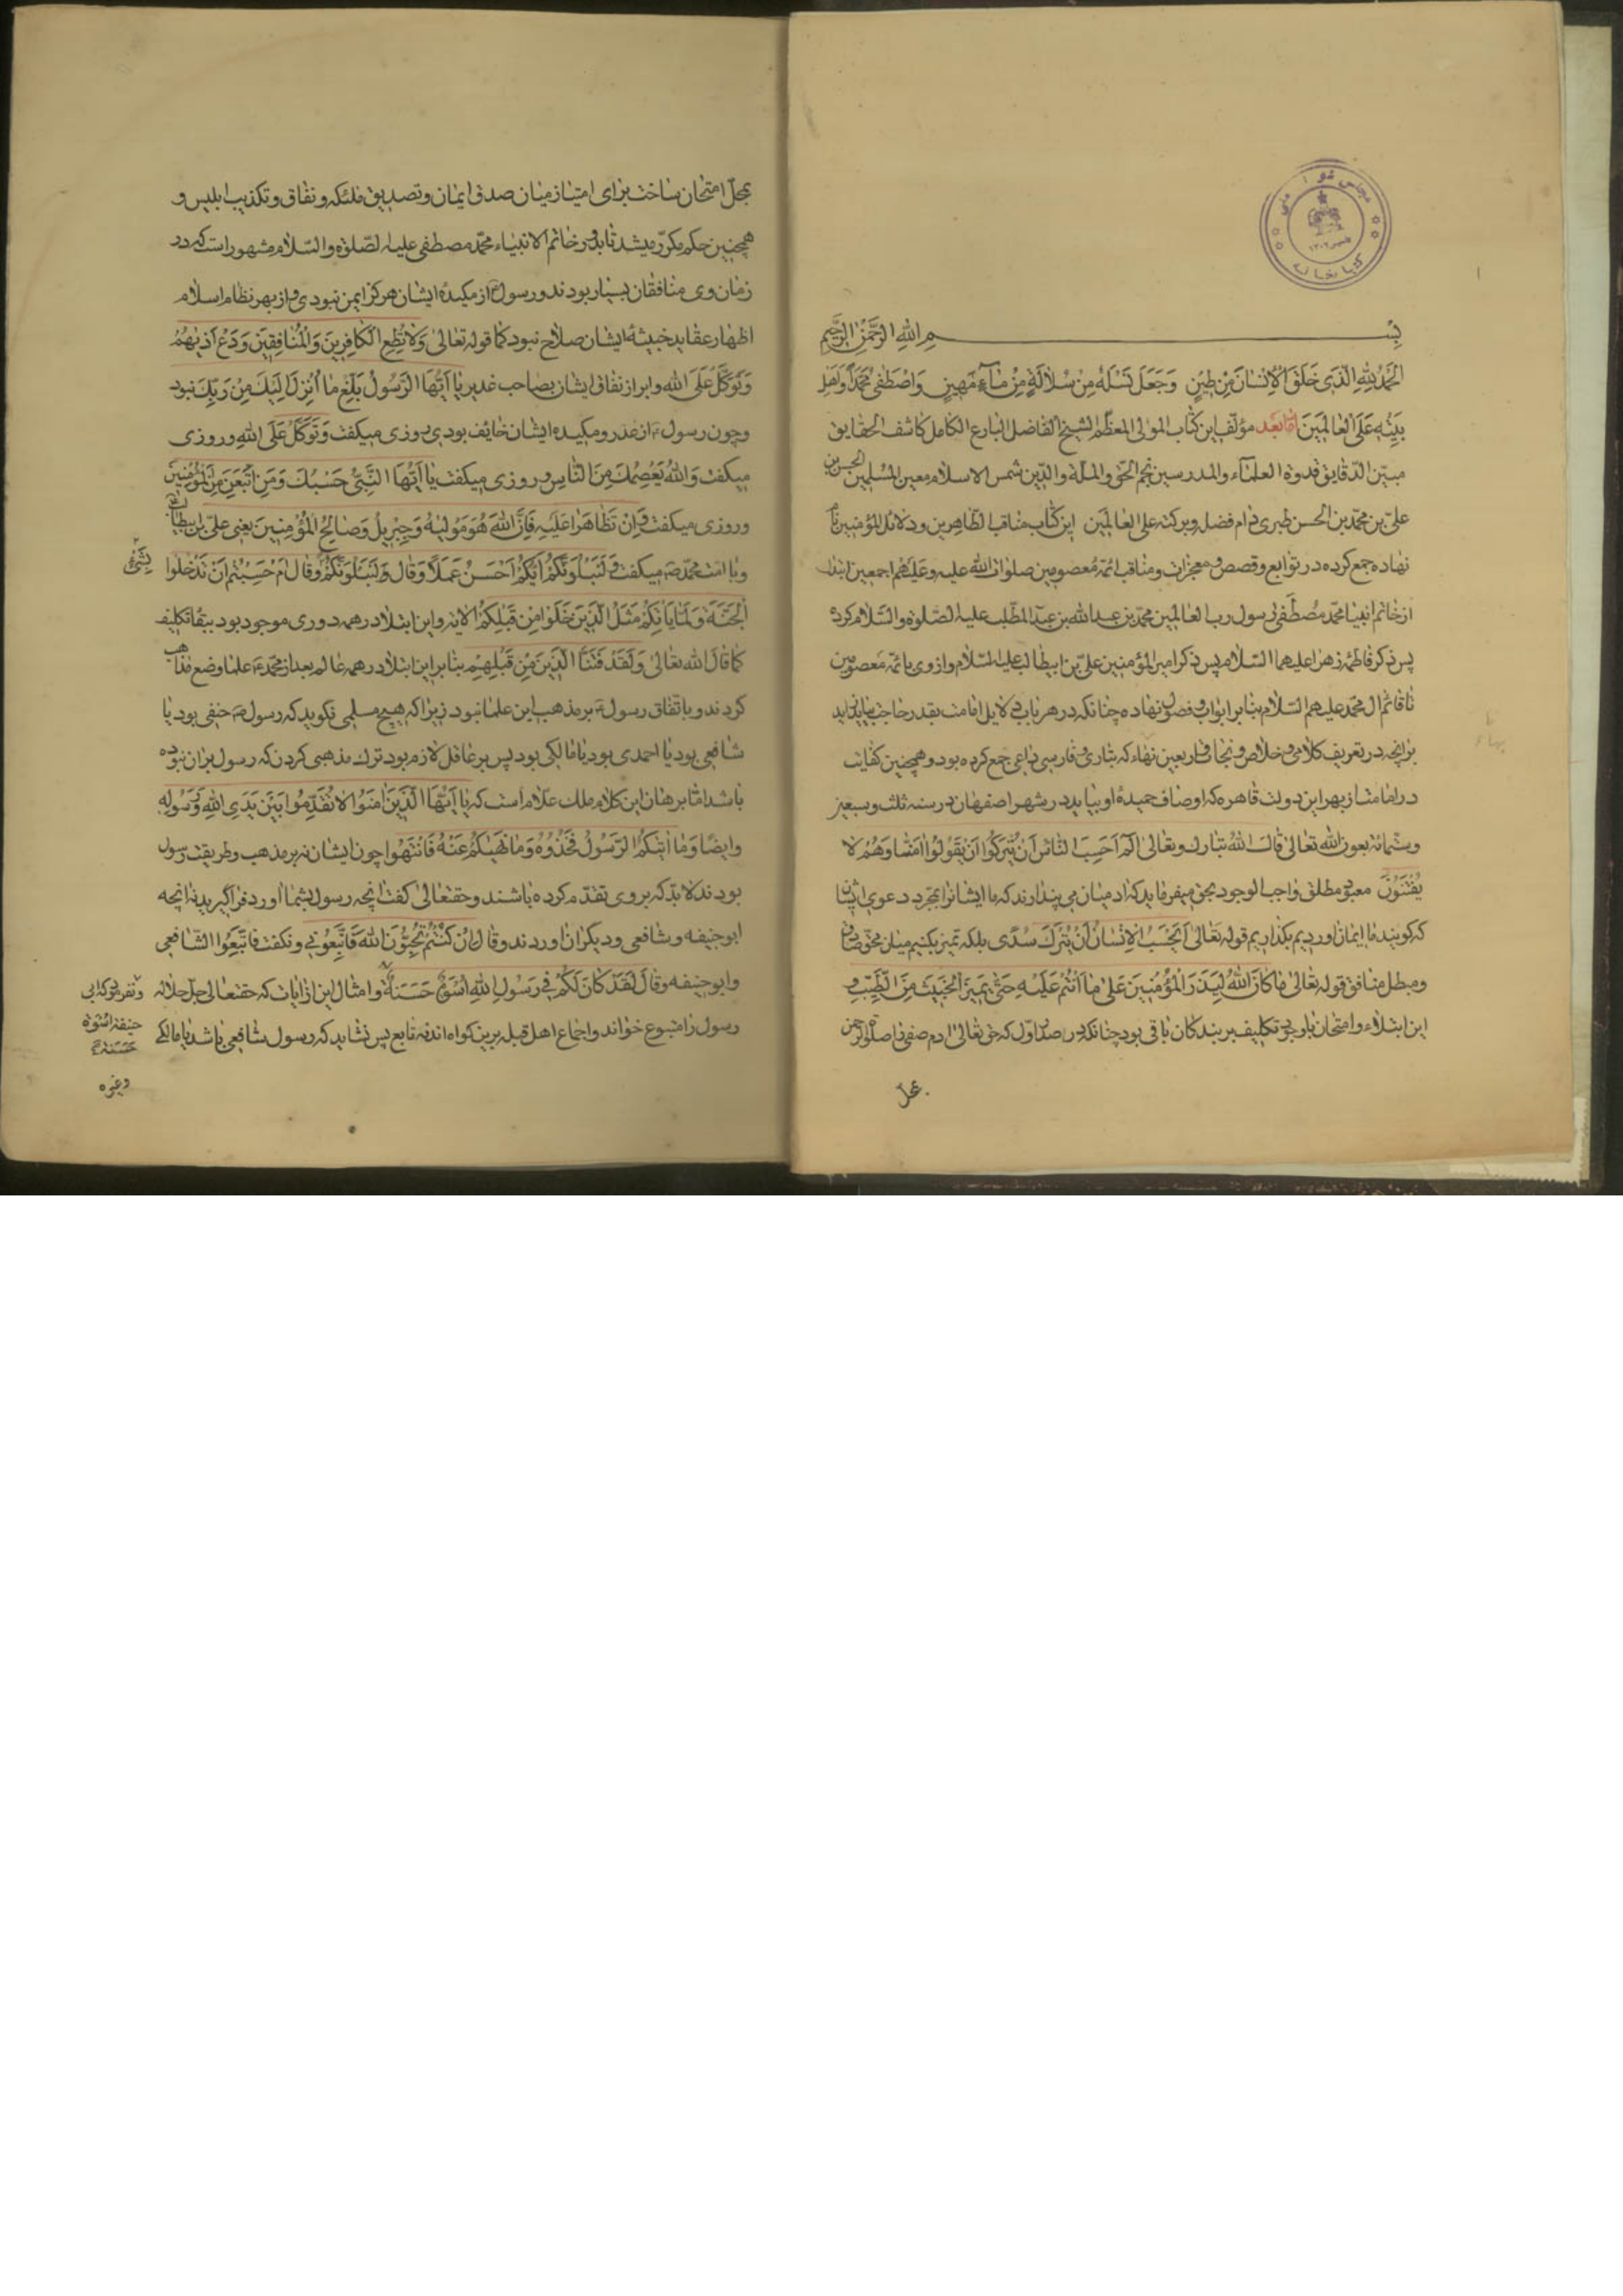 بسم الله الرحمن الرحیم
الحمد لله الذی خلق الانسان من طین وجعل نسله من سلالة من ماء مهین واصطفی محمدا واهل
بیته علی العالمین اما بعد مؤلف این کتاب المولی المعظم الشیخ الفاضل البارع الکامل کاشف الحقایق
مبین الدقایق قدوة العلماء والمدرسین نجم الحق والملة والدین شمس الاسلام معین المسلمین الحسن بن
علی بن محمد بن الحسن طبری دام فضله وبرکته علی العالمین این کتاب مناقب الطاهرین ودلائل المؤمنین نام
نهاده جمع کرده در تواریخ وقصص ومعجزات ومناقب ائمه معصومین صلوات الله علیه وعلیهم اجمعین ابتدا
از خاتم انبیا محمد مصطفی رسول رب العالمین محمد بن عبدالله بن عبد المطلب علیه الصلوة والسلام کرده
پس ذکر فاطمه زهرا علیهما السلام پس ذکر امیر المؤمنین علی بن ابیطالب علیه السلام واز وی بائمه معصومین
تا قائم ال محمد علیهم السلام بنا بر ابواب وفصول نهاده چنانکه در هر باب دلایل امامت بقدر حاجت بیاید
برانچه در تعریف کلامی وخلاص ونجات واربعین بهاء که بتازی وفارسی داعی جمع کرده بود وهمچنین کفایت
در امامت از بهر این دولت قاهره که اوصاف حمیده او بیاید در شهر اصفهان در سنه ثلث وسبعین
وستمائه بعون الله تعالی قال الله تبارک وتعالی الم احسب الناس ان یترکوا ان یقولوا امنا وهم لا
یفتنون معبود مطلق واجب الوجود بحق میفرماید که ادمیان می پندارند که ما ایشانرا بمجرد دعوی ایشان
که گویند ما ایمان اوردیم بگذاریم قوله تعالی ایحسب الانسان ان یترک سدی بلکه تمیز بکنیم میان محق صادق
ومبطل منافق قوله تعالی ما کان الله لیذر المؤمنین علی ما انتم علیه حتی یمیز الخبیث من الطیب و
این ابتلاء وامتحان با وجود تکلیف بر بندگان باقی بود چنانکه در صدر اول که حق تعالی ادم صفی را صلوة الرحمن
محل
بمحل امتحان ساخت برای امتیاز میان صدق ایمان وتصدیق ملئکه ونفاق وتکذیب ابلیس و
همچنین حکم مکرر میشد تا بدور خاتم الانبیاء محمد مصطفی علیه الصلوة والسلام مشهور است که در
زمان وی منافقان بسیار بودند ورسول از مکیده ایشان هرگز ایمن نبودی واز بهر نظام اسلام
اظهار عقاید خبیثه ایشان صلاح نبود کما قوله تعالی ولا تطع الکافرین والمنافقین ودع اذیهم
وتوکل علی الله وابراز نفاق ایشان بصاحب غدیر یا ایها الرسول بلغ ما انزل الیک من ربک نبود
وچون رسول از غدر ومکیده ایشان خائف بودی روزی میگفت وتوکل علی الله وروزی
میگفت والله یعصمک من الناس وروزی میگفت یا ایها النبی حسبک ومن اتبعک من المؤمنین
وروزی میگفت وان تظاهرا علیه فان الله هو مولیه وجبریل وصالح المؤمنین یعنی علی بن ابیطالب
وبا امت محمد میگفت ولنبلونکم ایکم احسن عملا وقال ولنبلونکم وقال ام حسبتم ان تدخلوا
بشیء
الجنة ولما یاتکم مثل الذین خلوا من قبلکم الایه واین ابتلا در همه دوری موجود بود ببقا تکلیف
کما قال الله تعالی ولقد فتنا الذین من قبلهم بنا بر این ابتلا در همه عالم بعد از محمد علما وضع مذاهب
کردند وباتفاق رسول بر مذهب این علما نبود زیرا که هیچ مسلمی نگوید که رسول حنفی بود یا
شافعی بود یا احمدی بود یا مالکی بود پس بر عاقل لازم بود ترک مذهبی کردن که رسول بران نبوده
باشد اما برهان این کلام ملک علام است که یا ایها الذین امنوا لا تقدموا بین یدی الله ورسوله
وایضا وما اتیکم الرسول فخذوه وما نهیکم عنه فانتهوا چون ایشان نه بر مذهب وطریقت رسول
بودند لابد که بر وی تقدم کرده باشند وحقتعالی گفت انچه رسول بشما اورد فراگیرید نه انچه
ابوحنیفه وشافعی ودیگران اوردند وقال ان کنتم تحبون الله فاتبعونی ونگفت فاتبعوا الشافعی
وابوحنیفه وقال لقد کان لکم فی رسول الله اسوة حسنة وامثال این از ایات که حقتعالی جل جلاله
رسول را متبوع خواند واجماع اهل قبله برین گواه اند نه تابع پس نشاید که رسول شافعی باشد یا مالکی
ونفرمود که ابی
حنیفه اسوة
حسنة
وغیره